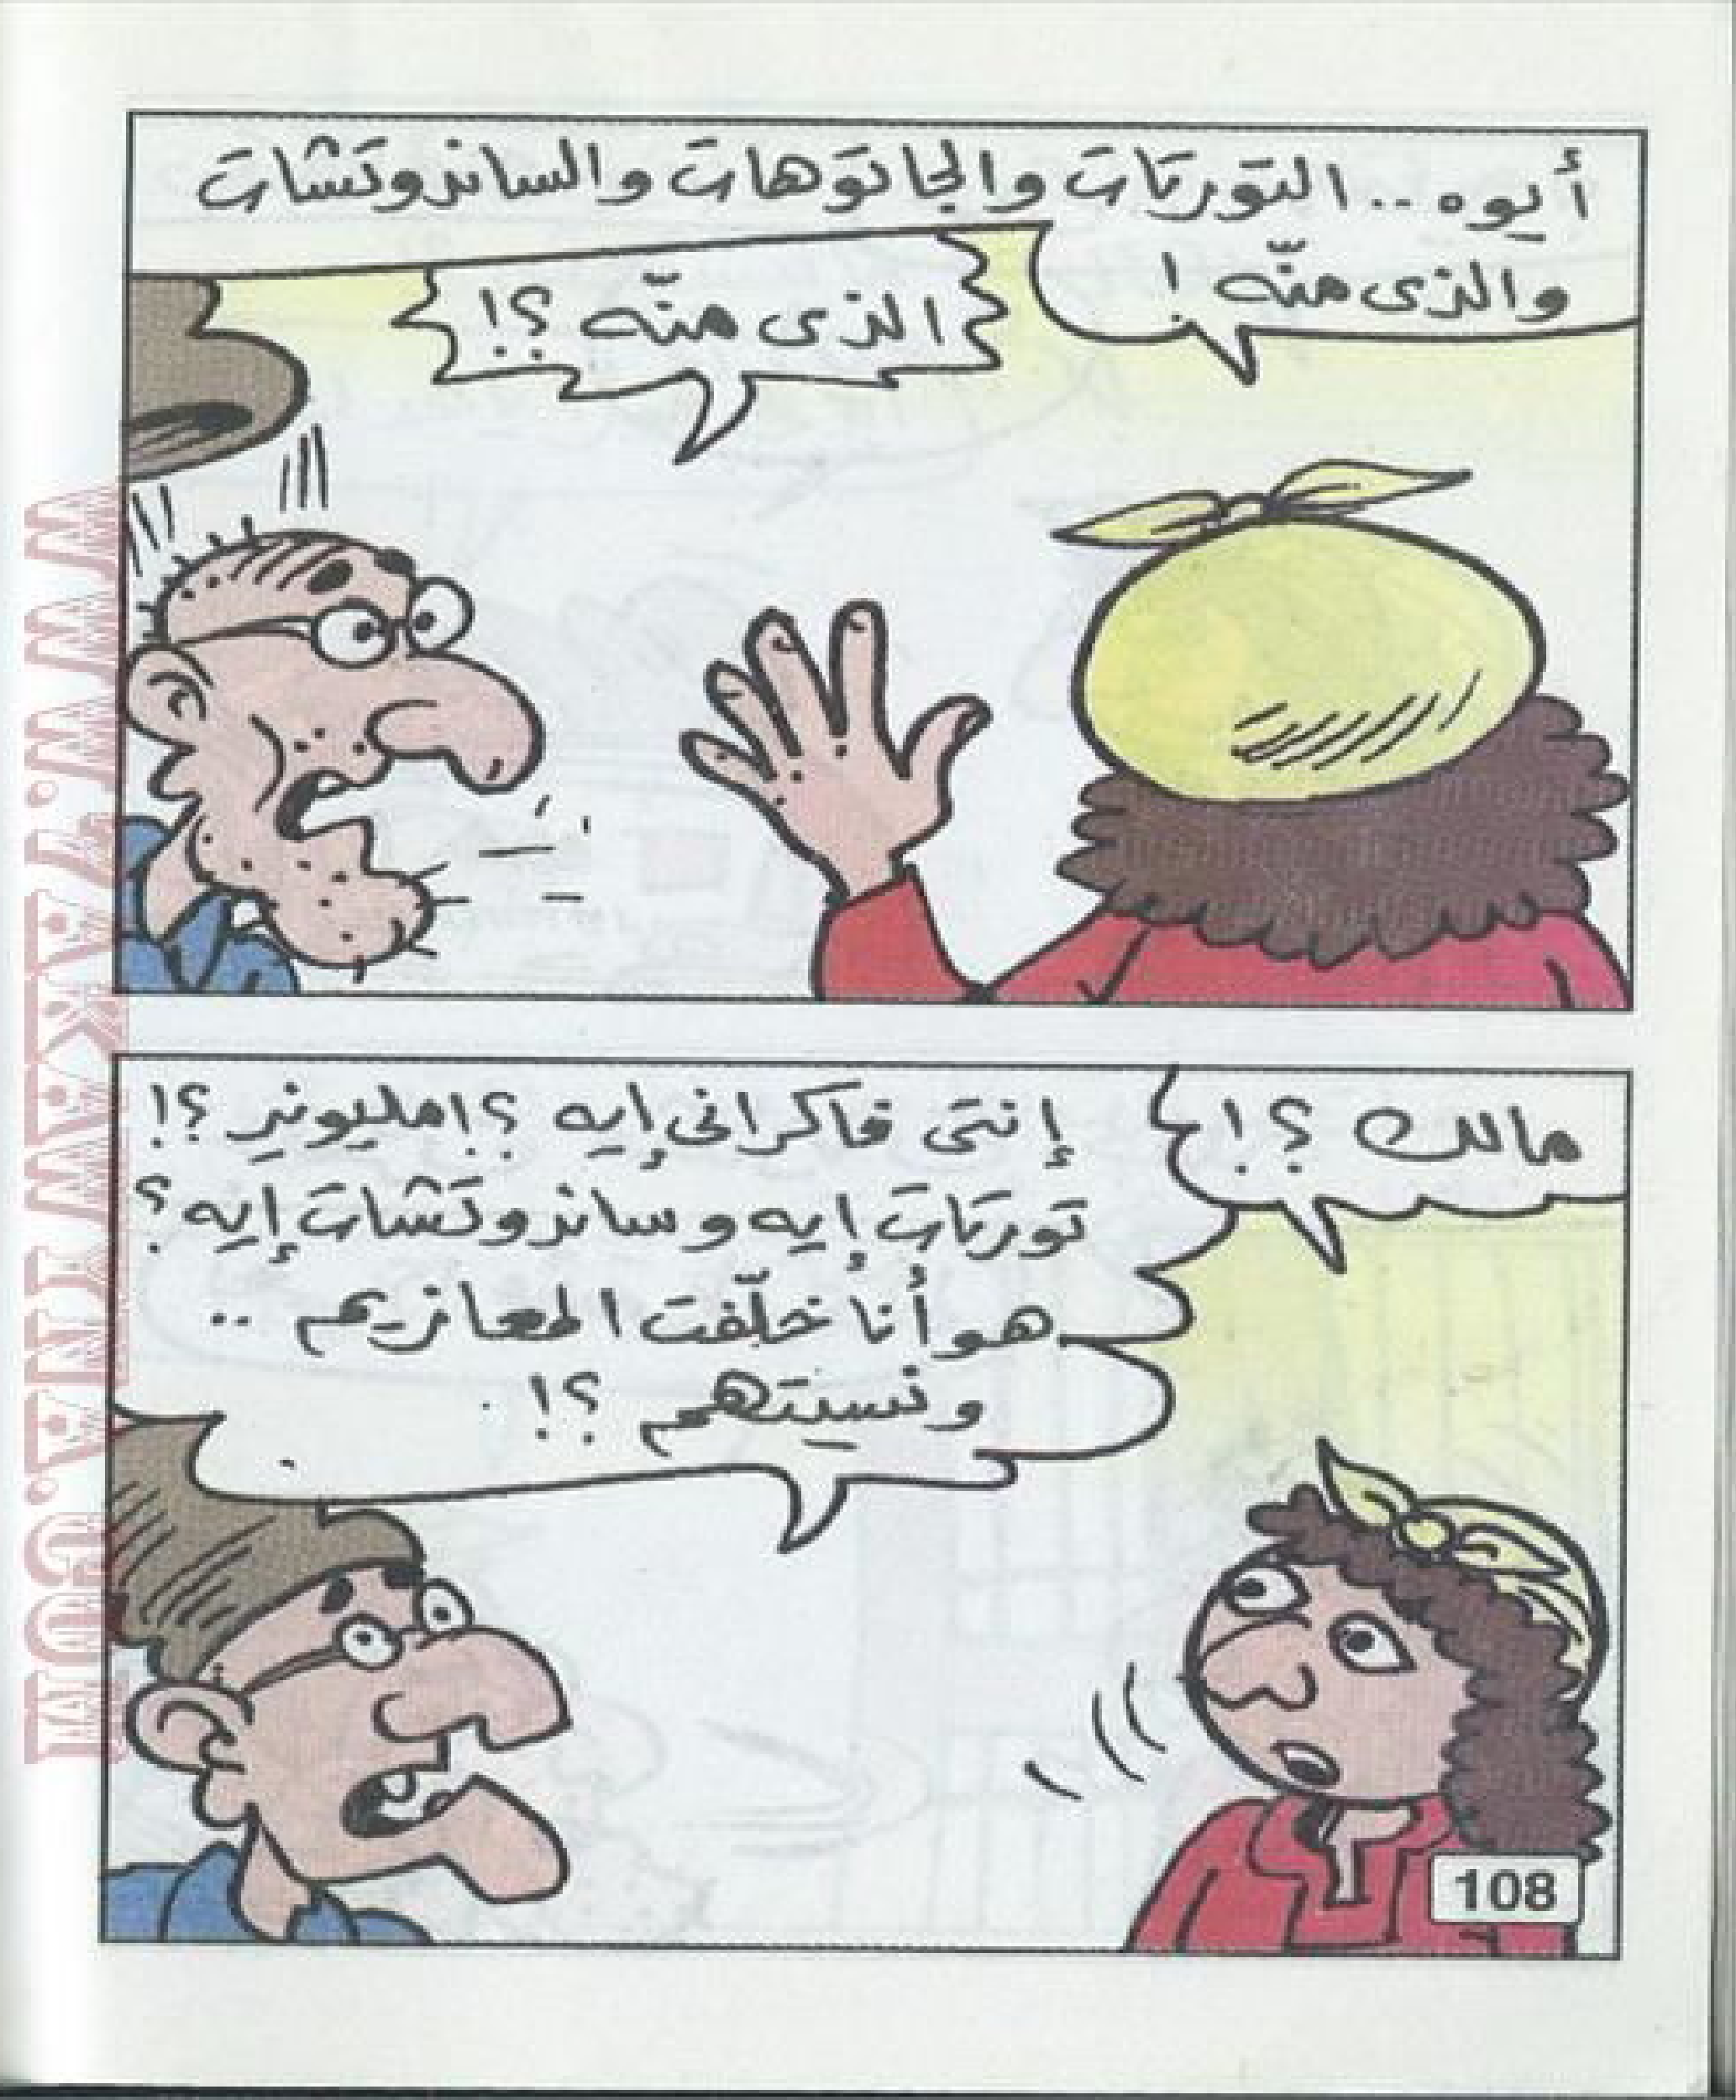 أيوه.. التورتات والجاتوهات والساندوتشات
والذى منّه !
الذى منّه ؟!
مالك ؟!
إنتى فاكرانى إيه ؟! مليونير ؟!
تورتات إيه وساندوتشات إيه ؟
هو أنا خلّفت المعازيم ..
ونسيتهم ؟!
108
WWW.7AKAWITNA.COM